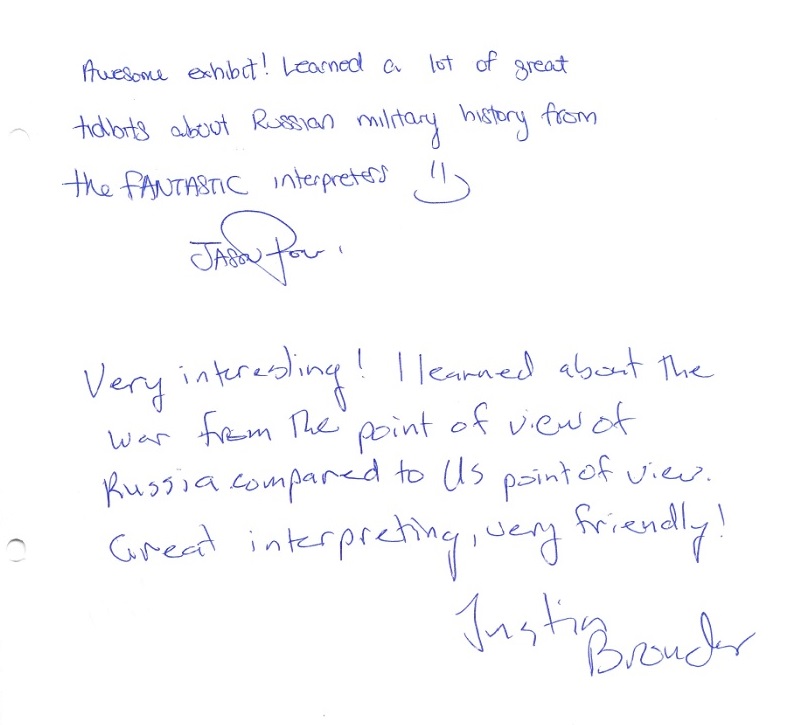 Awesome exhibit! Learned a lot of great
tidbits about Russian military history from
the FANTASTIC interpreters :)
JASON
Very interesting! I learned about the
war from the point of view of
Russia compared to US point of view.
Great interpreting, very friendly!
Justin